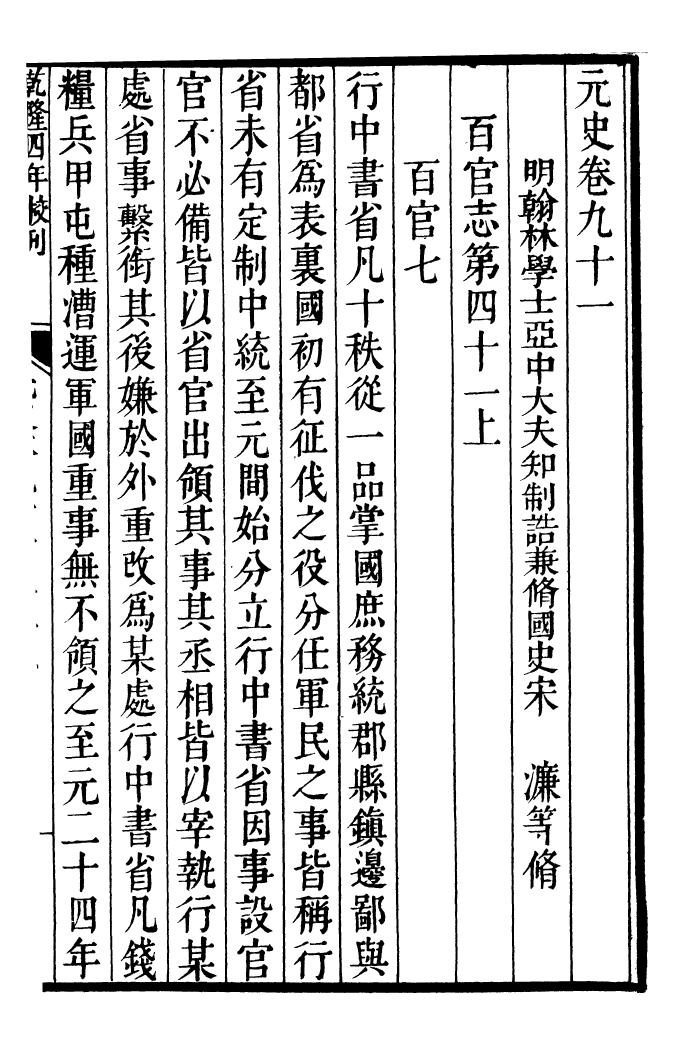 元史卷九十一
明翰林學士亞中大夫知制誥兼脩國史宋　濂等脩
百官志第四十一上
百官七
行中書省凡十秩從一品掌國庶務統郡縣鎮邊鄙與
都省爲表裏國初有征伐之役分任軍民之事皆稱行
省未有定制中統至元間始分立行中書省因事設官
官不必備皆以省官出領其事其丞相皆以宰執行某
處省事繫銜其後嫌於外重改爲某處行中書省凡錢
糧兵甲屯種漕運軍國重事無不領之至元二十四年
乾隆四年校刊